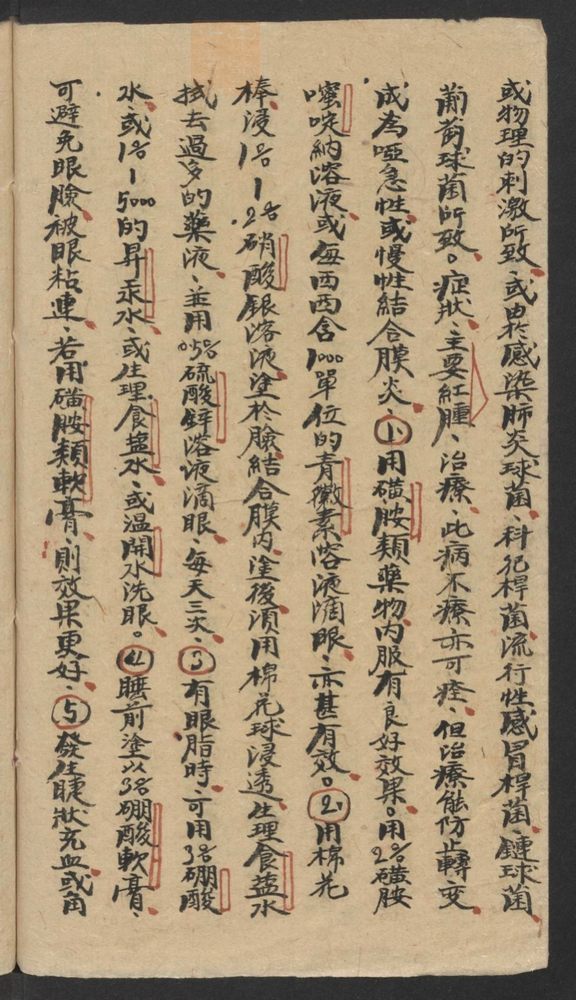 或物理的刺激所致、或由於感染肺炎球菌、科氏桿菌流行性感冒桿菌、鏈球菌、
葡萄球菌所致。症狀、主要紅腫、治療、此病不療亦可痊、但治療能防止轉變
成為亞急性、或慢性結合膜炎、①用磺胺類藥物內服有良好效果。用2%磺胺
嘧啶納溶液或每西西含1000單位的青黴素溶液滴眼、亦甚有效。②用棉花
棒浸1%—2%硝酸銀溶液塗於臉結合膜內、塗後須用棉花球浸透生理食盐水
拭去過多的藥液、並用0.5%硫酸鋅溶液滴眼、每天三次、③有眼脂時、可用3%硼酸
水、或1%—5000的昇汞水、或生理食盐水、或温開水洗眼。④睡前塗以3%硼酸軟膏、
可避免眼臉被眼粘連、若用磺胺類軟膏、則效果更好、⑤發生睫狀充血或角